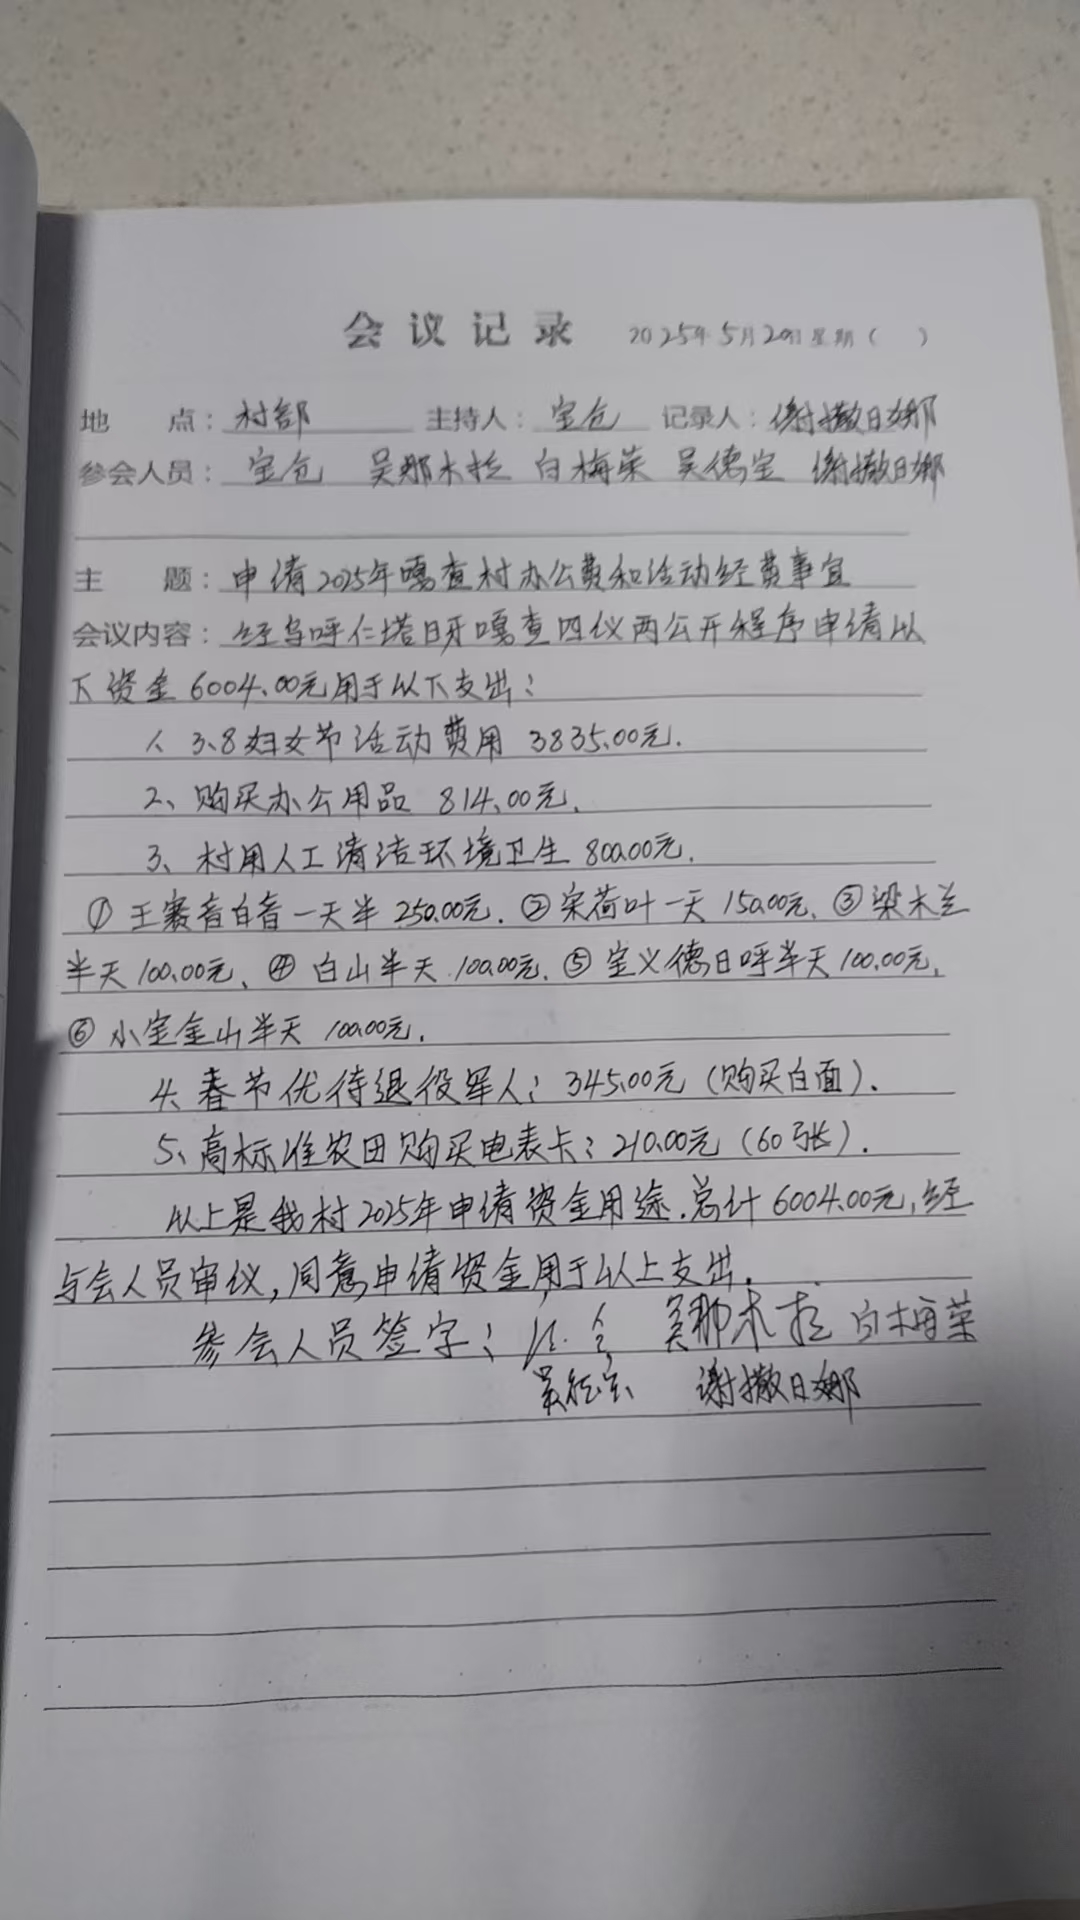 会议记录 2025年5月20日 星期( )
地 点: 村部 主持人: 宝仓 记录人: 谢撒日娜
参会人员: 宝仓 吴那木拉 白梅荣 吴德宝 谢撒日娜
主 题: 申请2025年嘎查村办公费和活动经费事宜
会议内容: 经乌呼仁塔日牙嘎查四议两公开程序申请以
下资金6004.00元用于以下支出:
1、3.8妇女节活动费用 3835.00元.
2、购买办公用品 814.00元.
3、村用人工清洁环境卫生 800.00元.
① 王赛音白音一天半 250.00元. ② 宋荷叶一天 150.00元、③ 梁木兰
半天 100.00元、④ 白山半天 100.00元. ⑤ 宝义德日呼半天 100.00元,
⑥ 小宝金山半天 100.00元.
4、春节优待退役军人: 345.00元 (购买白面).
5、高标准农田购买电表卡: 210.00元 (60张).
以上是我村2025年申请资金用途.总计6004.00元,经
与会人员审议,同意申请资金用于以上支出.
参会人员签字: 吴那木拉 白梅荣
吴德宝 谢撒日娜